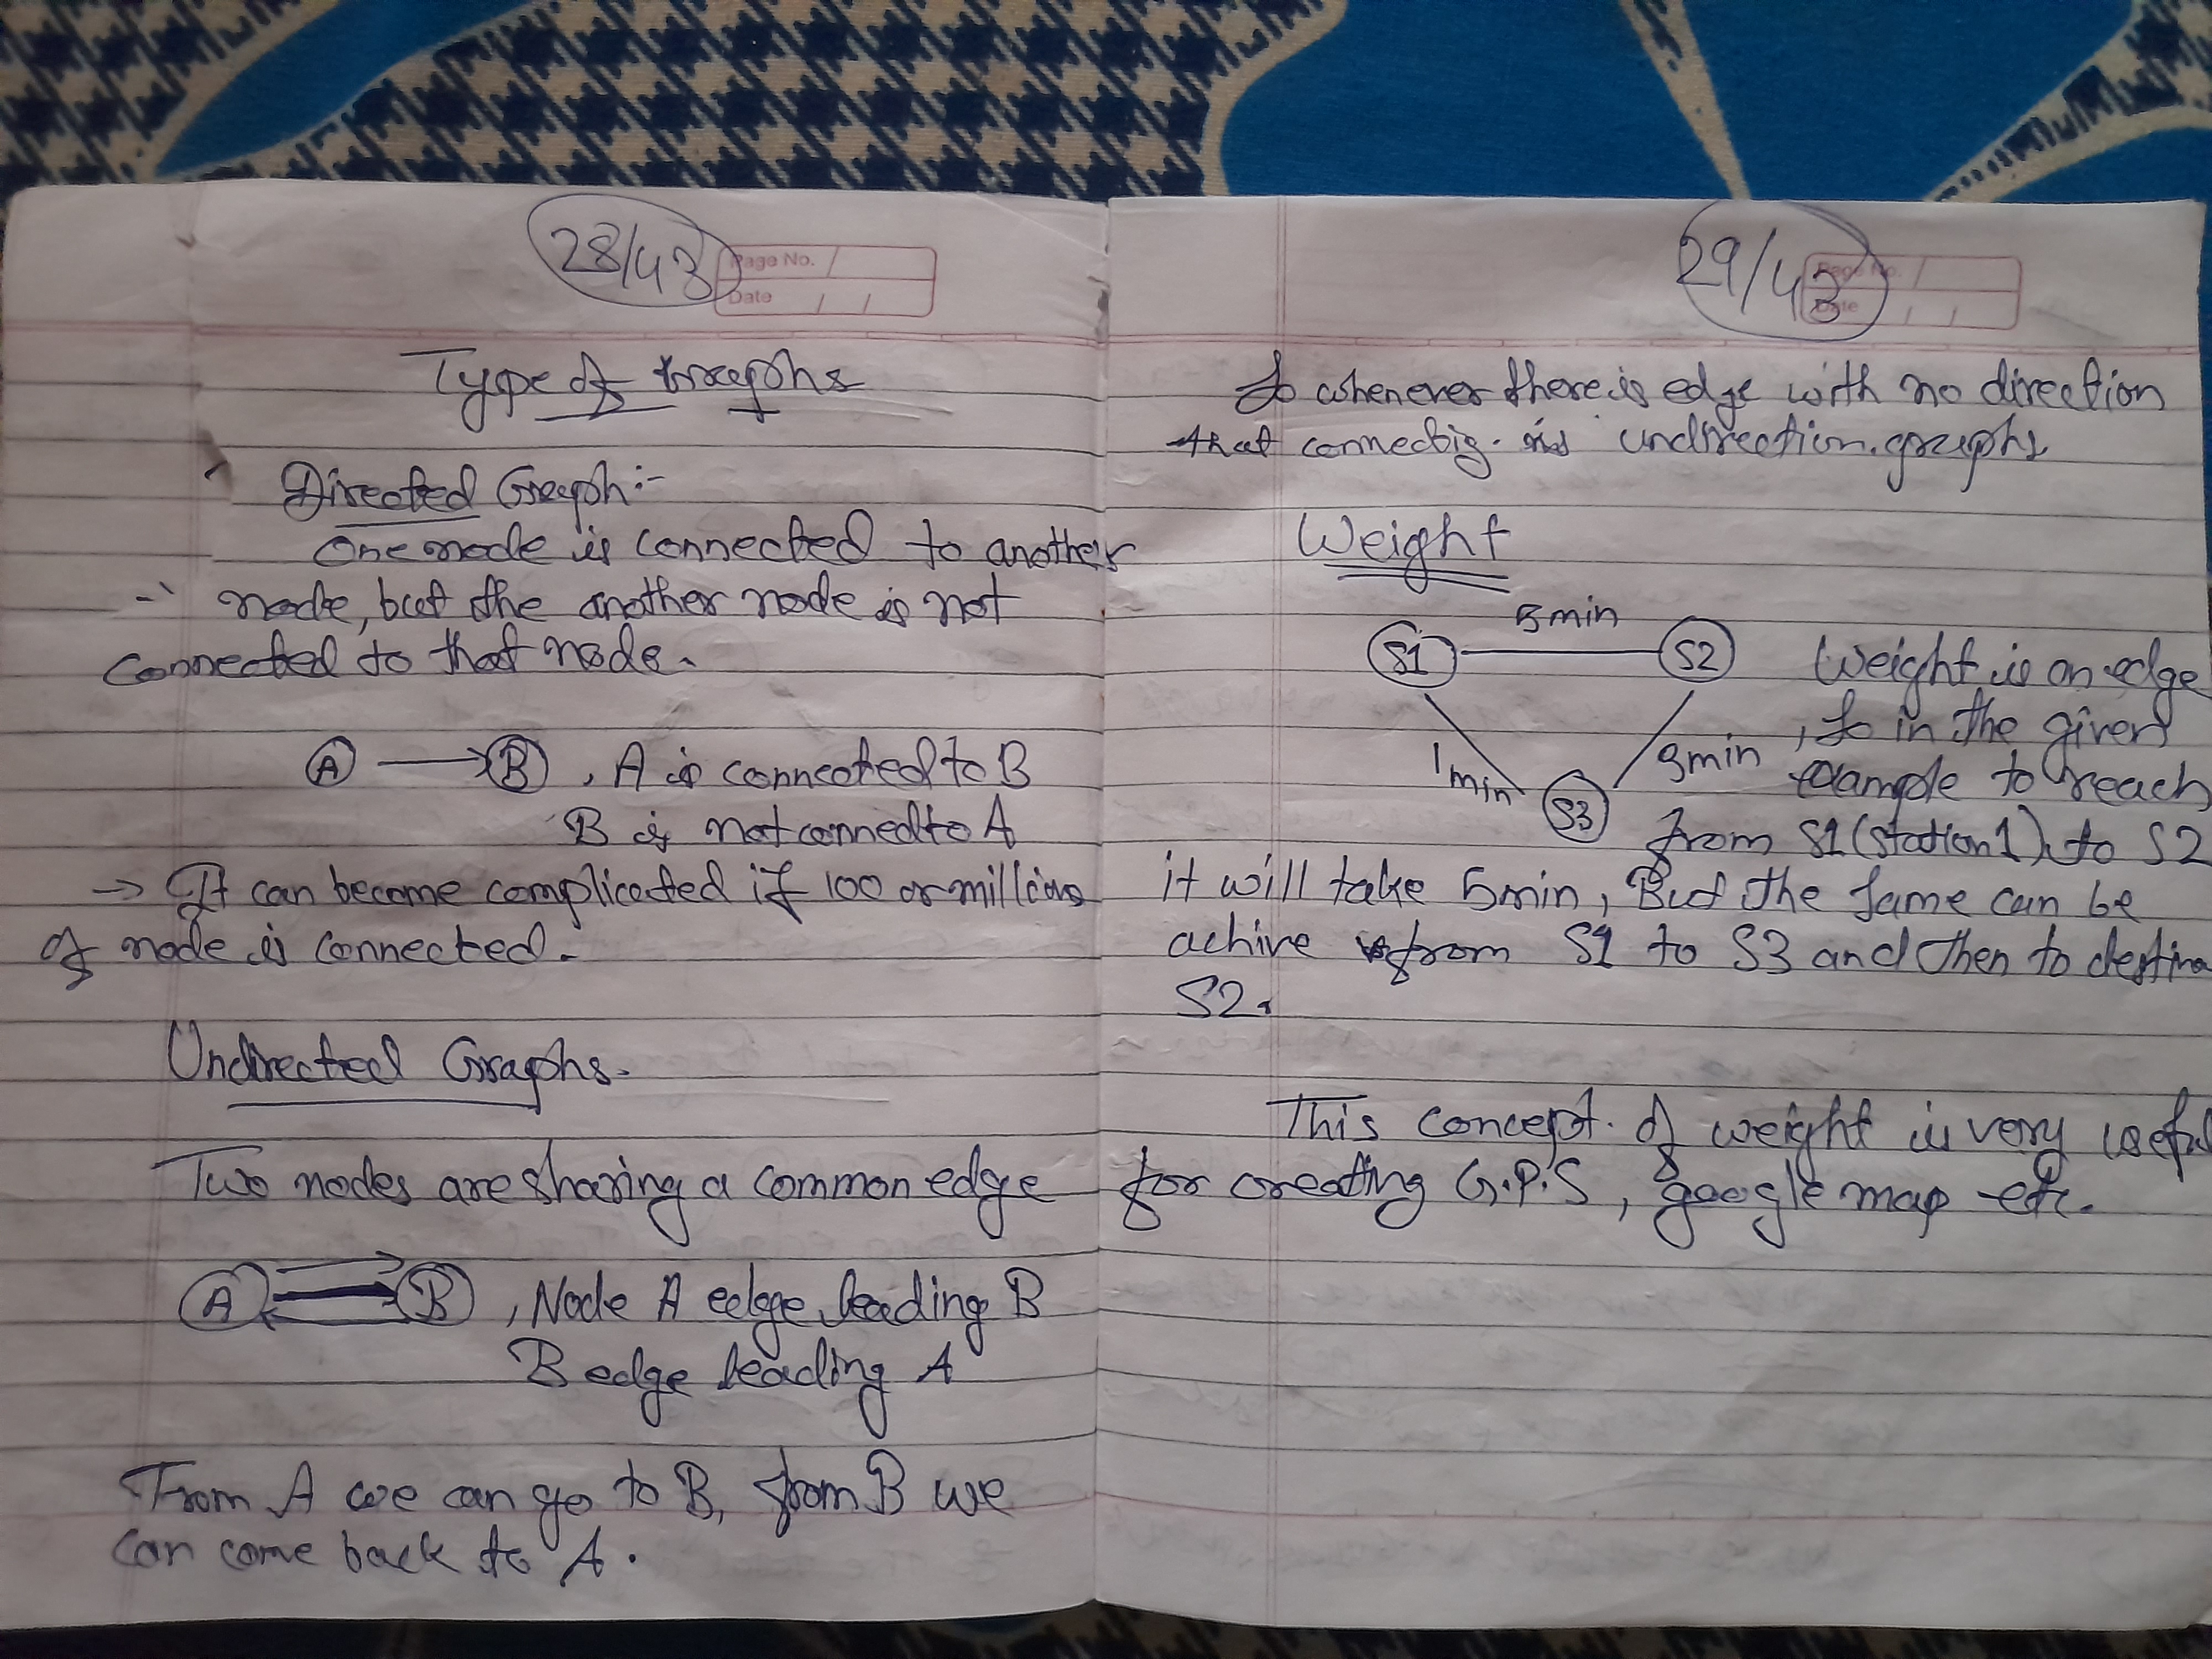 28/43
Page No.
Date / /
Type of Graphs
Directed Graph:-
One node is connected to another
node, but the another node is not
connected to that node.
A B , A is connected to B
B is not conned to A
→ It can become complicated if 100 or millions
of node is connected.
Undirected Graphs.
Two nodes are sharing a common edge
A B , Node A edge leading B
B edge leading A
From A we can go to B, from B we
can come back to A.
29/43
Page No.
Date / /
So whenever there is edge with no direction
that connectig. is undirection graphs
Weight
5min
S1 S2 Weight is on edge
1min 3min , So in the given
S3 example to reach
from S1 (station 1) to S2
it will take 5min, But the same can be
achive from S1 to S3 and then to destina
S2.
This concept of weight is very useful
for creating G.P.S, google map etc.